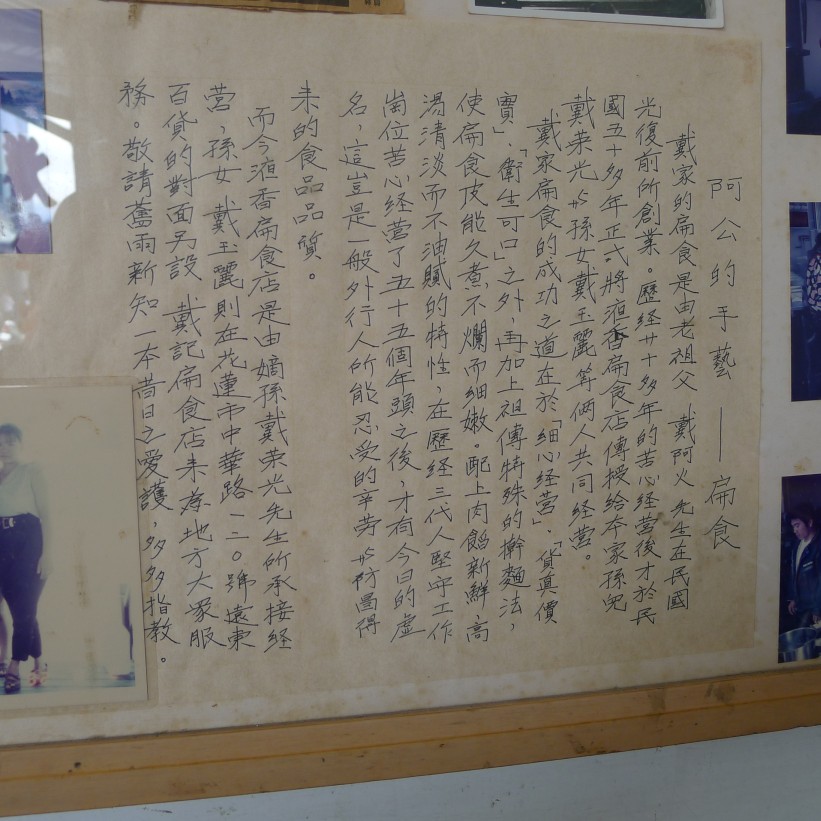 阿公的手藝——扁食
戴家的扁食是由老祖父 戴阿火 先生在民國
光復前所創業。歷経廿十多年的苦心経營後才於民
國五十多年正式將液香扁食店傳授給本家孫兒
戴荣光与孫女戴玉麗等俩人共同経營。
戴家扁食的成功之道在於「細心経營」、「貨真價
實」、「衛生可口」之外，再加上祖傳特殊的擀麵法，
使扁食皮能久煮不爛而細嫩。配上肉餡新鮮、高
湯清淡而不油膩的特性，在歷経三代人堅守工作
崗位苦心経營了五十五個年頭之後，才有今日的虛
名，這豈是一般外行人所能忍受的辛劳与祊啚得
来的食品品質。
而今液香扁食店是由嫡孫戴荣光先生所承接経
营，孫女 戴玉麗則在花蓮市中華路一二〇號遠東
百貨的對面另設 戴記扁食店来為地方大眾服
務。敬請舊雨新知一本昔日之愛護，多多指教。